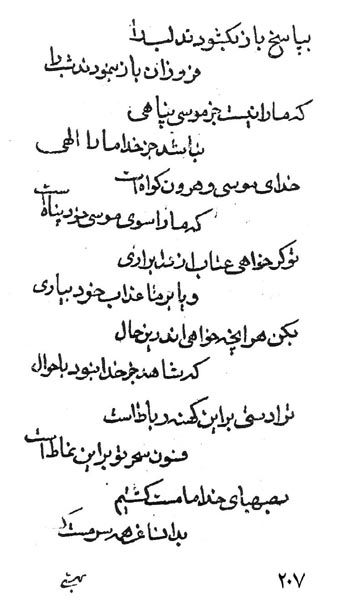 بپاسخ باز بگشودند لب را
فروزان باز بنمودند شب را
که ما را نیست جز موسی پناهی
نباشد جز خدا ما را الهی
خدای موسی و هرون گواه است
که ما را سوی موسی خود پناه است
تو گر خواهی عتاب از تند براری
و یا بر ما عذاب خود بیاری
بکن هر آنچه خواهی اندرین حال
که شاهد جز خدا نبود باحوال
ترا دستی براین کهنه رباط است
فنون سحر تو براین نماط است
بصهبای خدا ما مست گشتیم
بدان ساغر همه سرمست
۲۰۷